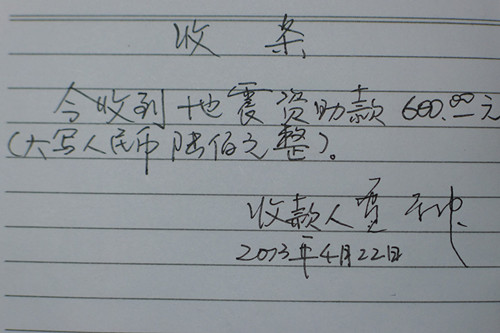 收条
今收到地震资助款600.00元
(大写人民币陆佰元整)。
收款人
2013年4月22日